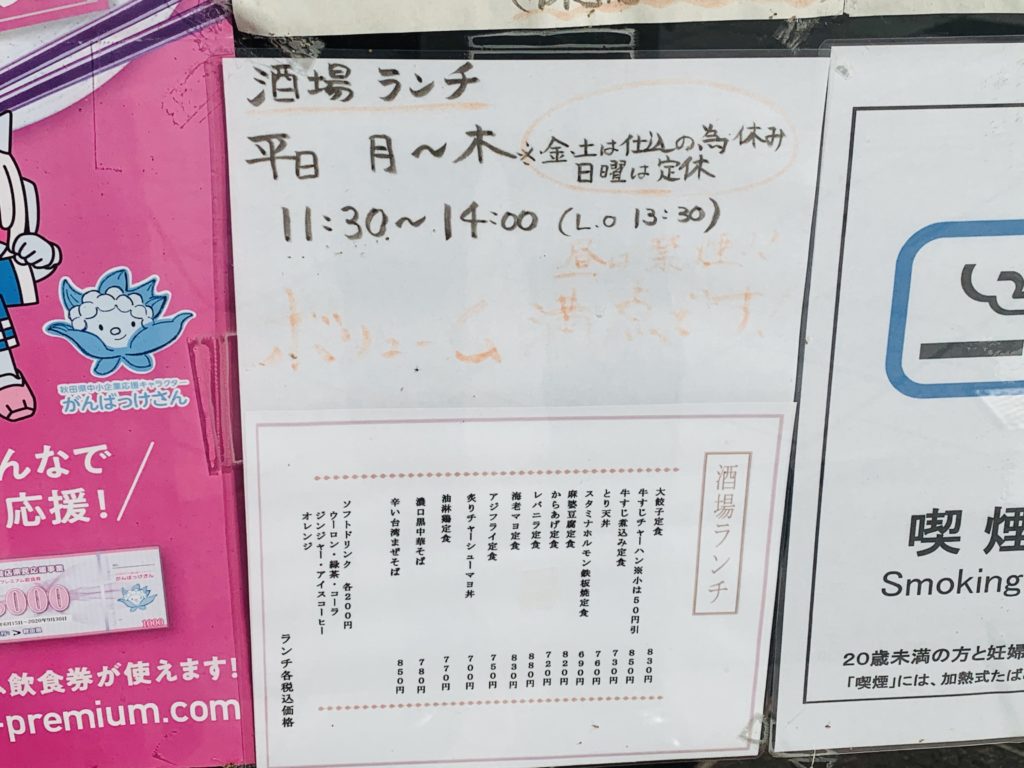 酒場 ランチ
平日 月～木
※金・土は仕込の為休み
日曜は定休
11:30～14:00 (L.O 13:30)
昼は禁煙
ボリューム 満点です
酒場ランチ
大餃子定食 830円
牛すじチャーハン※小は50円引 850円
牛すじ煮込み定食 730円
とり天丼 760円
スタミナホルモン鉄板焼定食 690円
麻婆豆腐定食 820円
からあげ定食 720円
レバニラ定食 880円
海老マヨ定食 830円
アジフライ定食 750円
炙りチャーシューマヨ丼 700円
油淋鶏定食 770円
濃口黒中華そば 780円
辛い台湾まぜそば 850円
ソフトドリンク 各200円
ウーロン・緑茶・コーラ
ジンジャー・アイスコーヒー
オレンジ
ランチ各税込価格
秋田県中小企業応援キャラクター
がんばっけさん
んなで
応援!
がんばっけさん
5000
1000
飲食券が使えます!
-premium.com
喫煙
Smoking
20歳未満の方と妊婦
「喫煙」には、加熱式たば